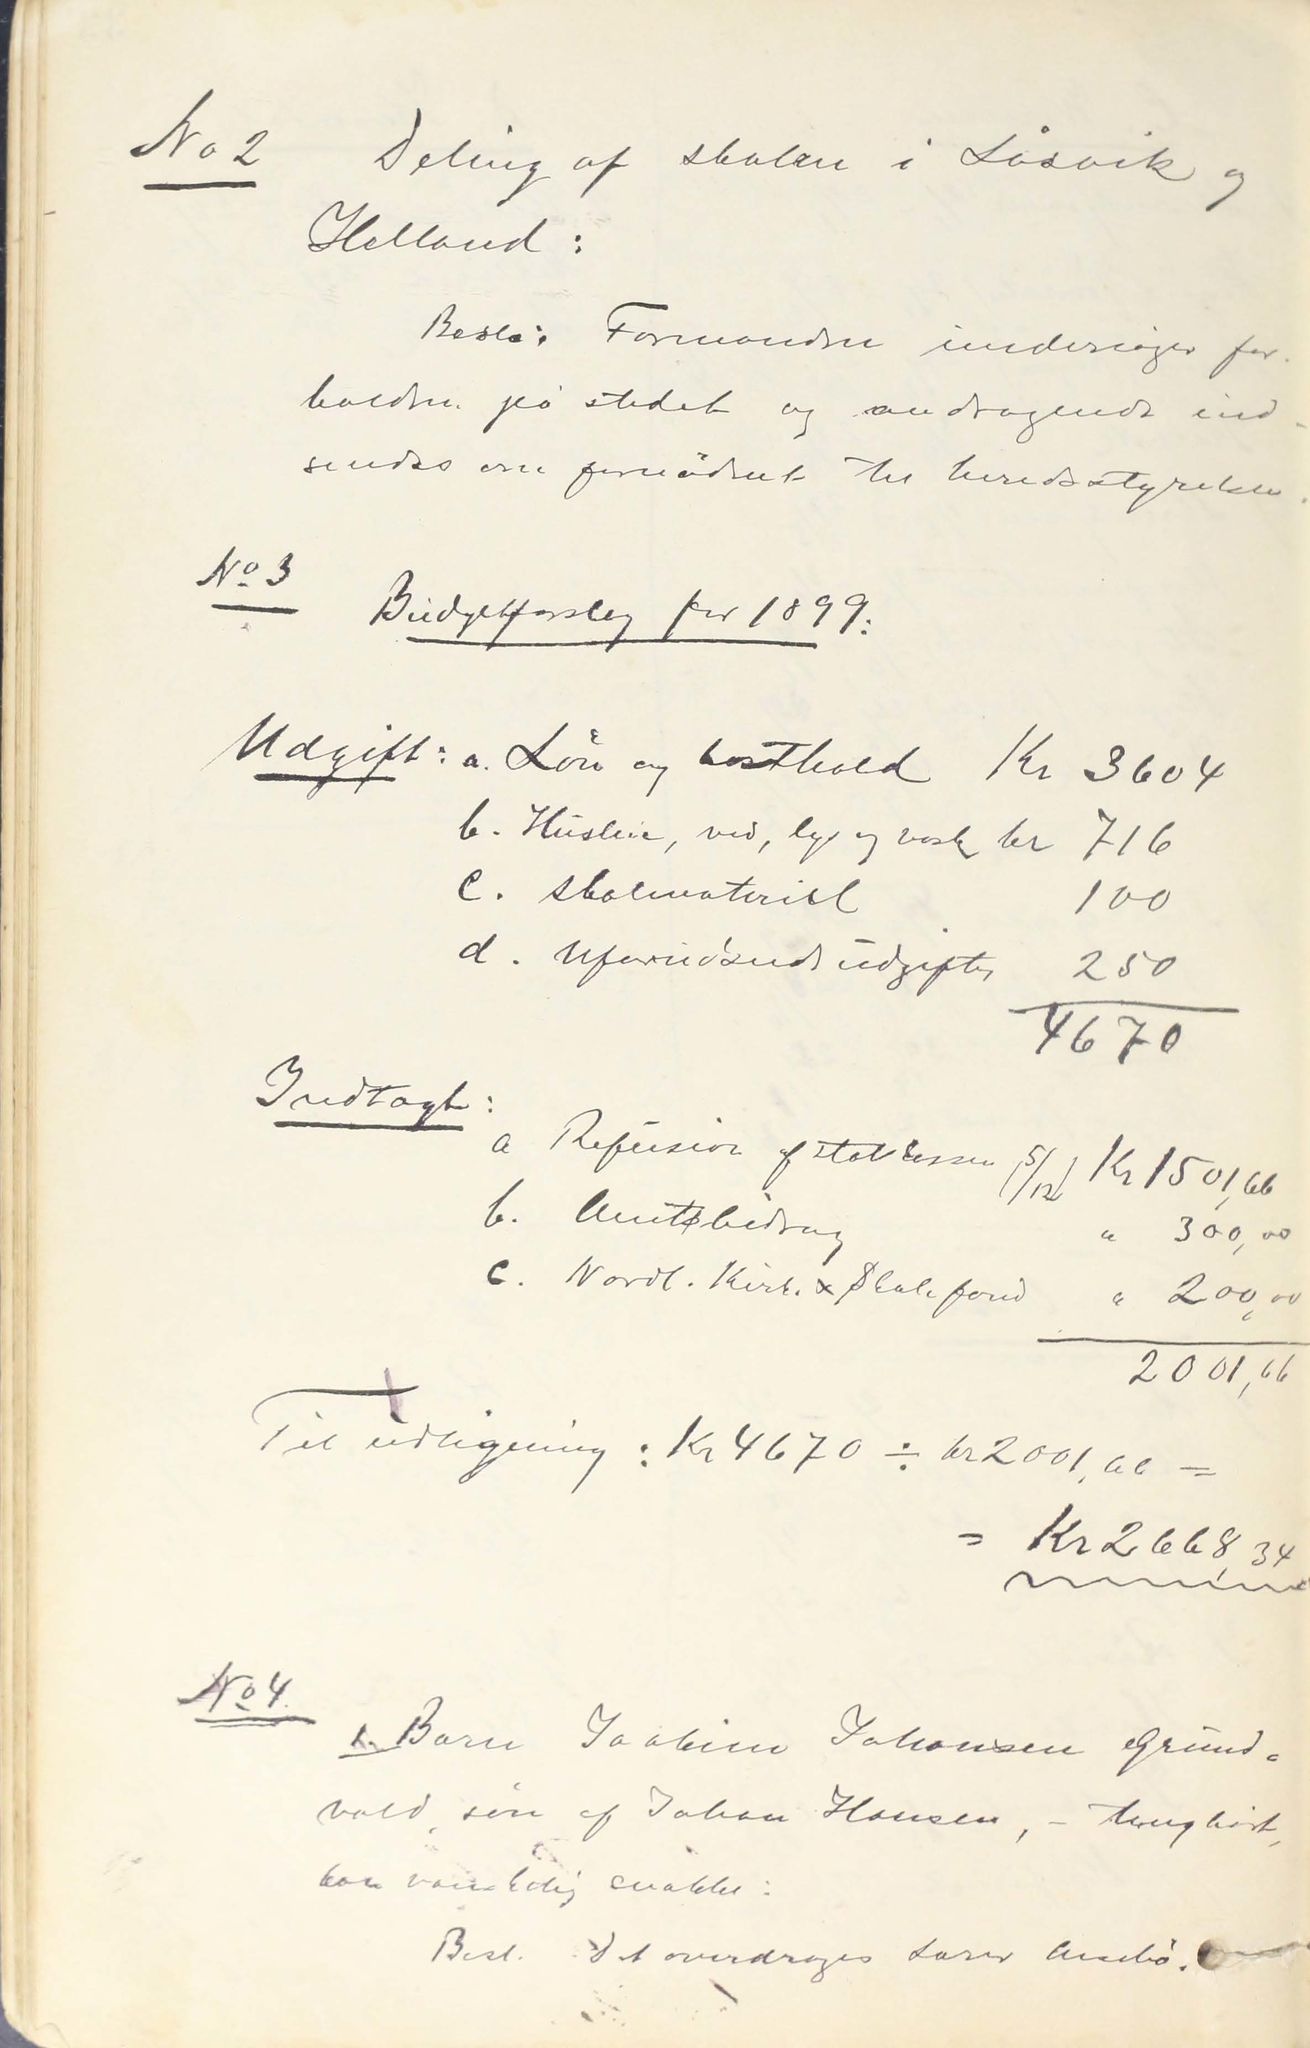 No 2 Deling af skolen i Låsvik og
Helland:
Besl: Formanden undersøger for-
holdene på stedet og andragende ind-
sendes om fornødent til heredsstyrelsen.
No 3 Budgetforslag for 1899:
Udgift: a. Løn og kosthold Kr 3604
b. Husleie, ved, lys og vask kr 716
c. Skolemateriel 100
d. Uforudseede udgifter 250
4670
Indtægt:
a Refusion af statskassen (5/12) Kr 1501,66
b. Amtsbidrag " 300,00
c. Nordl. Kirk. & Skolefond " 200,00
2001,66
Til udligning: Kr 4670 ÷ kr 2001,66 =
= Kr 2668,34
No 4.
1. Barn Joakim Johansen Grund-
vold, søn af Johan Hansen, - tunghørt,
kan vanskelig snakke:
Besl. Det overdrages Lærer